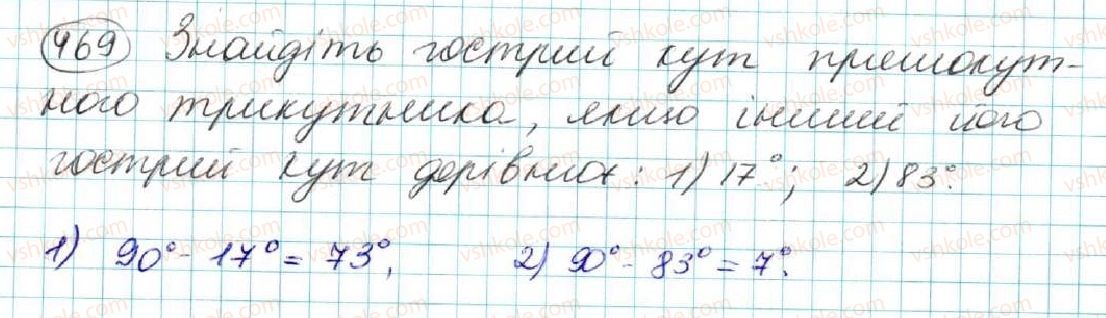 469 Знайдіть гострий кут прямокут-
ного трикутника, якщо інший його
гострий кут дорівнює: 1) 17°; 2) 83°.
1) 90° - 17° = 73°, 2) 90° - 83° = 7°.